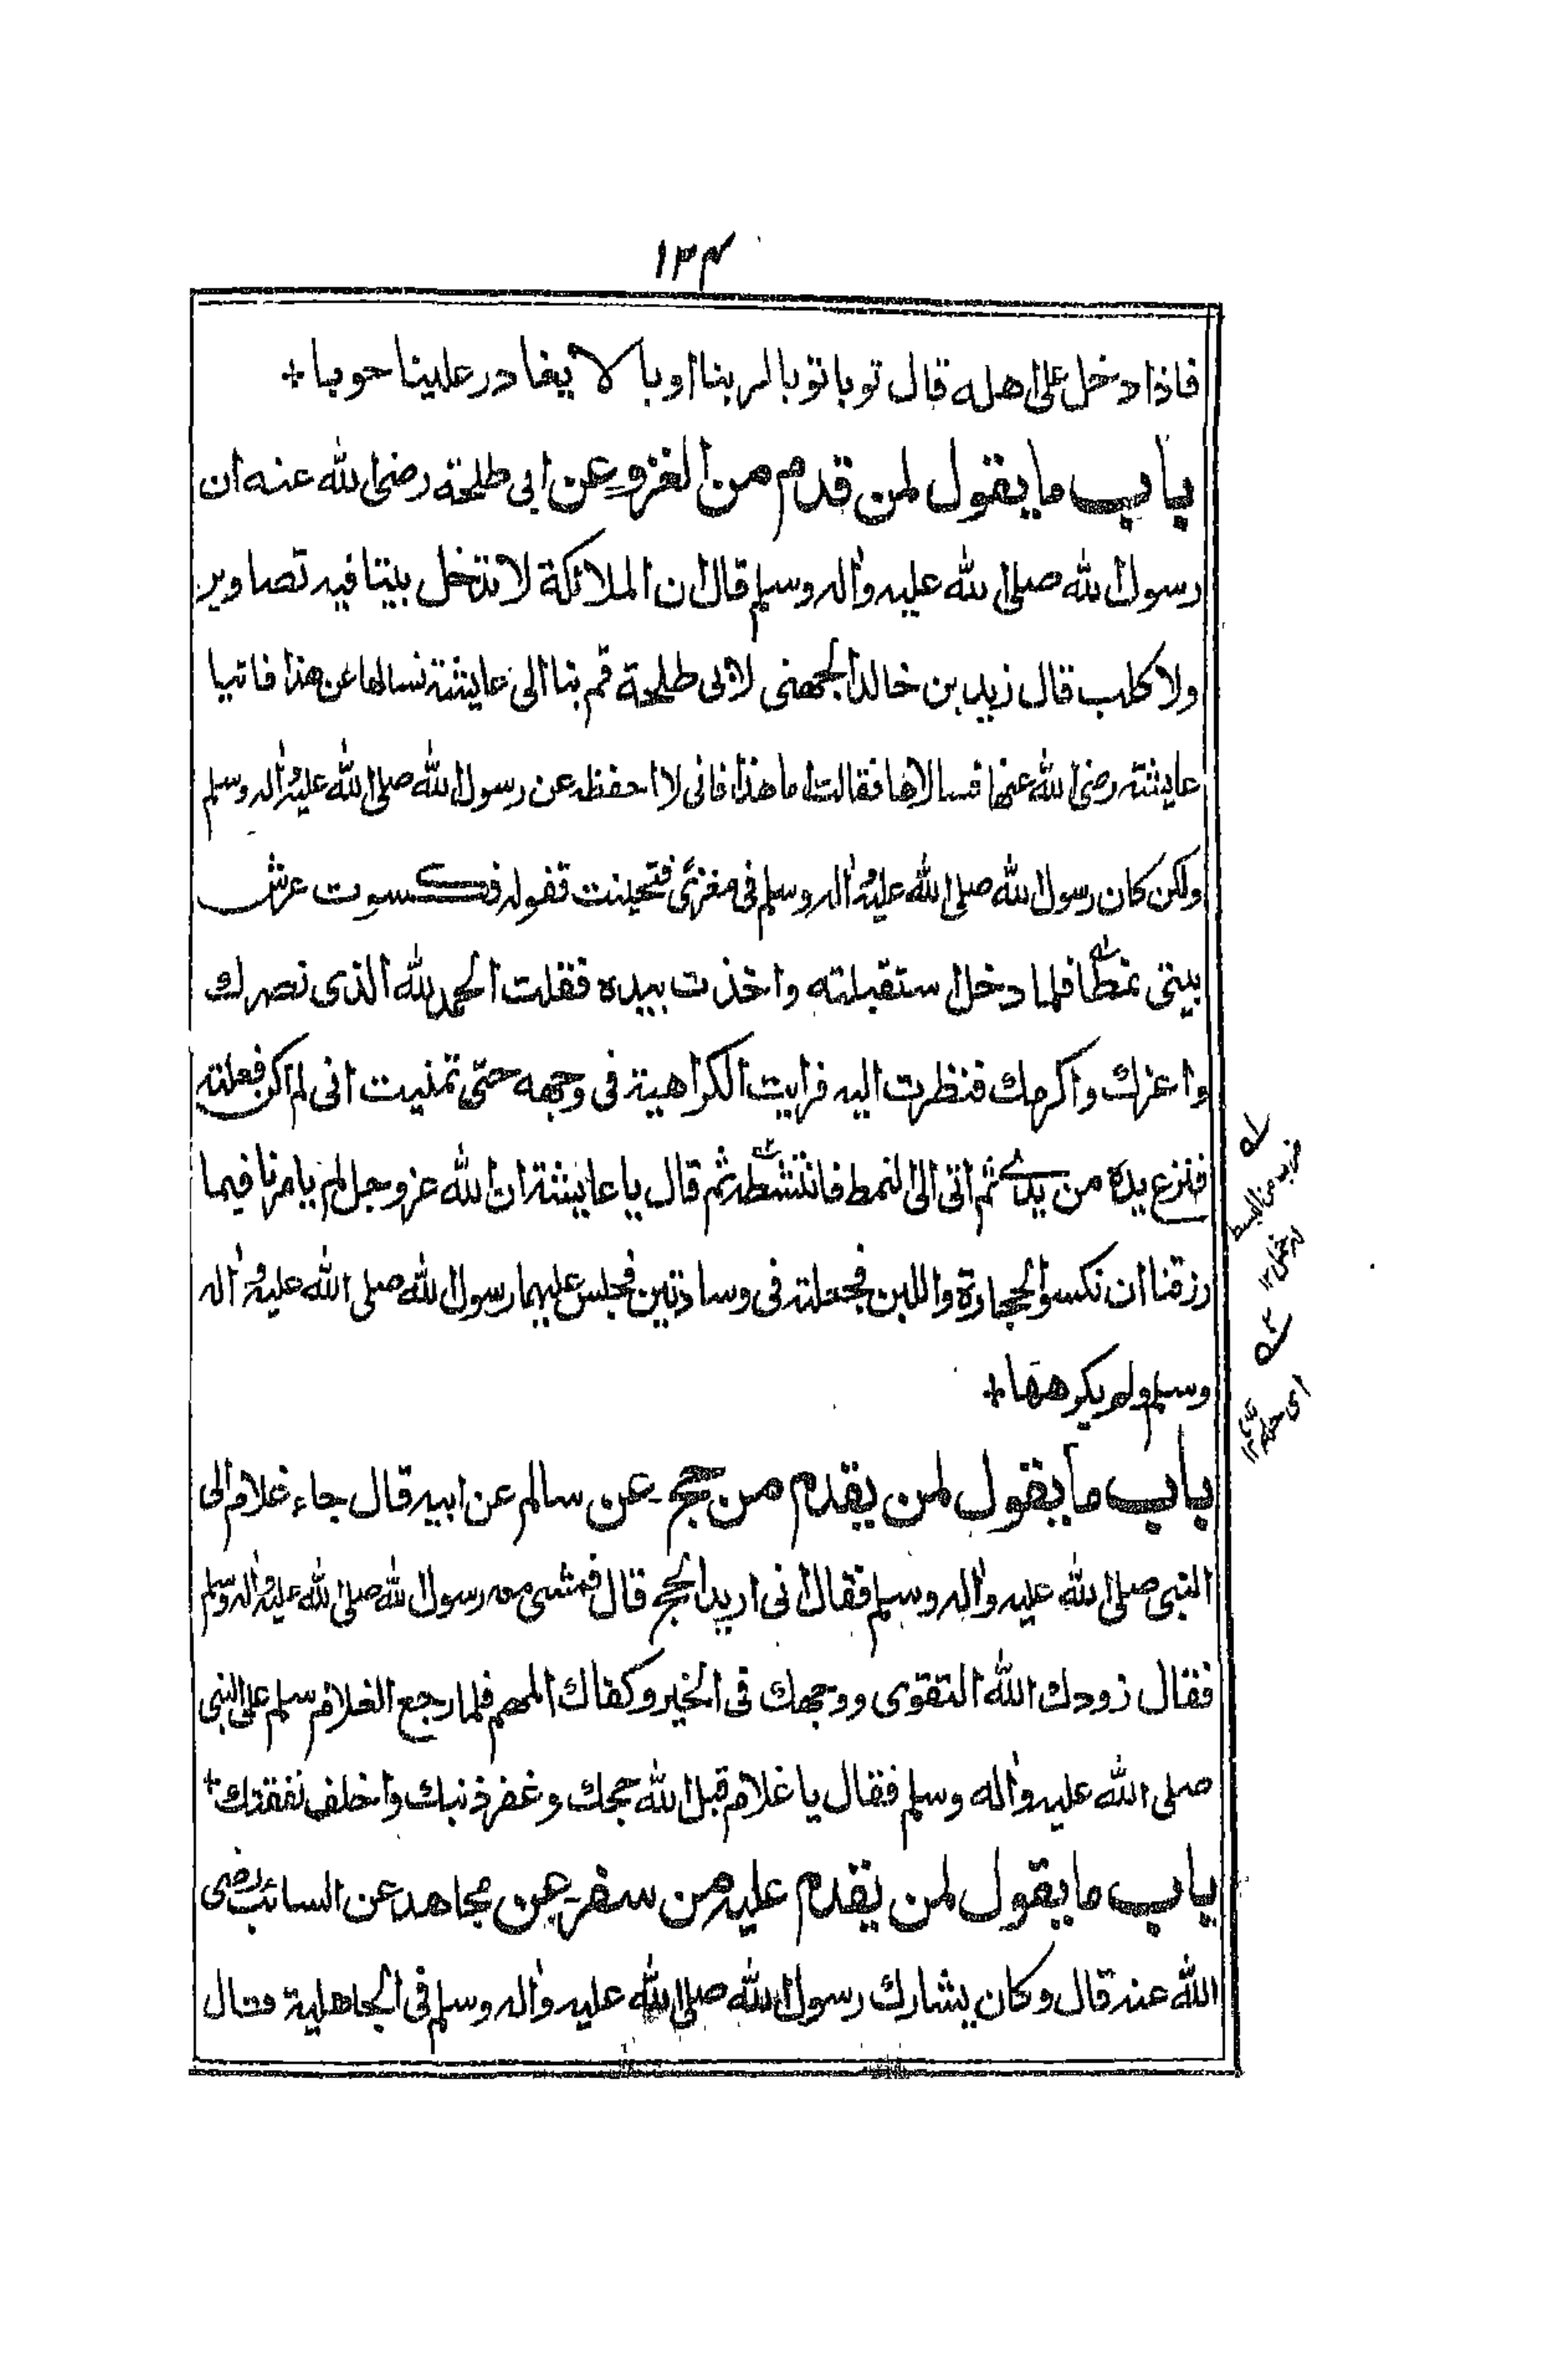 ١٣٤
فاذا دخل على اهله قال توبا توبا لربنا اوبا لا يغادر علينا حوبا +
باب ما يقول لمن قدم من الغزو عن ابى طلحة رضى الله عنه ان
رسول الله صلى الله عليه واله وسلم قال ان الملائكة لا تدخل بيتا فيه تصاوير
ولا كلب قال زيد بن خالد الجهنى لابى طلحة قم بنا الى عايشة نسالها عن هذا فاتيا
عايشة رضى الله عنها فسالاها فقالت اما هذا فانى لا احفظه عن رسول الله صلى الله عليه واله وسلم
ولكن كان رسول الله صلى الله عليه واله وسلم فى مغزى فتحينت قفوله فكسوت عرش
بيتى نمطا فلما دخل استقبلته واخذت بيده فقلت الحمد لله الذى نصرك
واعزك واكرمك فنظرت اليه فرايت الكراهية فى وجهه حتى تمنيت انى لم اكن فعلته
فنزع يده من يدى ثم اتى الى النمط فانتشطه ثم قال يا عايشة ان الله عز وجل لم يامرنا فيما
رزقنا ان نكسوا الحجارة واللبن فجعلته فى وسادتين فجلس عليهما رسول الله صلى الله عليه واله
وسلم ولم يكرهها +
باب ما يقول لمن يقدم من حج - عن سالم عن ابيه قال جاء غلام الى
النبى صلى الله عليه واله وسلم فقال انى اريد الحج قال فمشى معه رسول الله صلى الله عليه واله وسلم
فقال زودك الله التقوى ووجهك فى الخير وكفاك المهم فلما رجع الغلام سلم على النبى
صلى الله عليه واله وسلم فقال يا غلام قبل الله حجك وغفر ذنبك واخلف نفقتك +
باب ما يقول لمن يقدم عليه من سفر - عن مجاهد عن السائب رضى
الله عنه قال وكان يشارك رسول الله صلى الله عليه واله وسلم فى الجاهلية قال
ضرب من البسط
اى